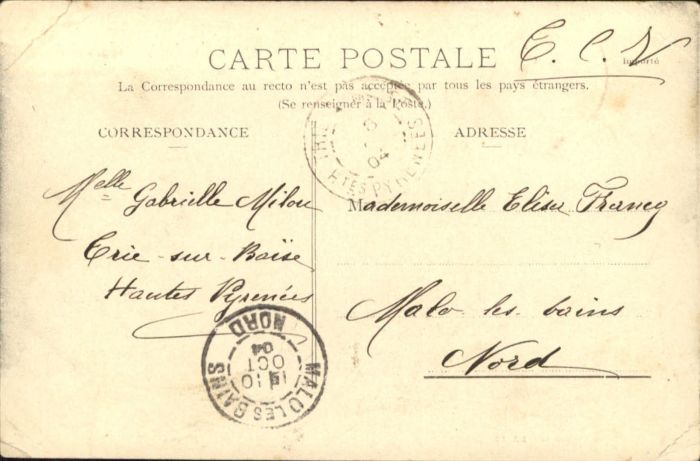 CARTE POSTALE
T. C. V
Importé
La Correspondance au recto n'est pas acceptée par tous les pays étrangers.
(Se renseigner à la Poste.)
CORRESPONDANCE
ADRESSE
04
HTES PYRENEES
Melle Gabrielle Milou
Trie-sur-Baïse
Hautes Pyrénées
Mademoiselle Elisa
Malo les bains
Nord
MALO LES BAINS
10
OCT
04
NORD